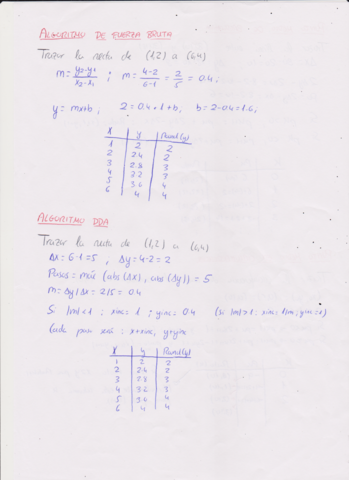 ALGORITMO DE FUERZA BRUTA
Trazar la recta de (1,2) a (6,4)
m = y2-y1 / x2-x1 ; m = 4-2 / 6-1 = 2 / 5 = 0.4 ;
y = mx+b ; 2 = 0.4 * 1 + b, b = 2-0.4 = 1.6 ;
X y Round(y)
1 2 2
2 2.4 2
3 2.8 3
4 3.2 3
5 3.6 4
6 4 4
ALGORITMO DDA
Trazar la recta de (1,2) a (6,4)
Δx = 6-1 = 5 , Δy = 4-2 = 2
Pasos = máx (abs(Δx), abs(Δy)) = 5
m = Δy/Δx = 2/5 = 0.4
Si |m|<1 ; xinc = 1 ; yinc = 0.4 (si |m|>1 : xinc = 1/m, yinc = 1)
Cada paso será : x+xinc, y+yinc
X y Round(y)
1 2 2
2 2.4 2
3 2.8 3
4 3.2 3
5 3.6 4
6 4 4